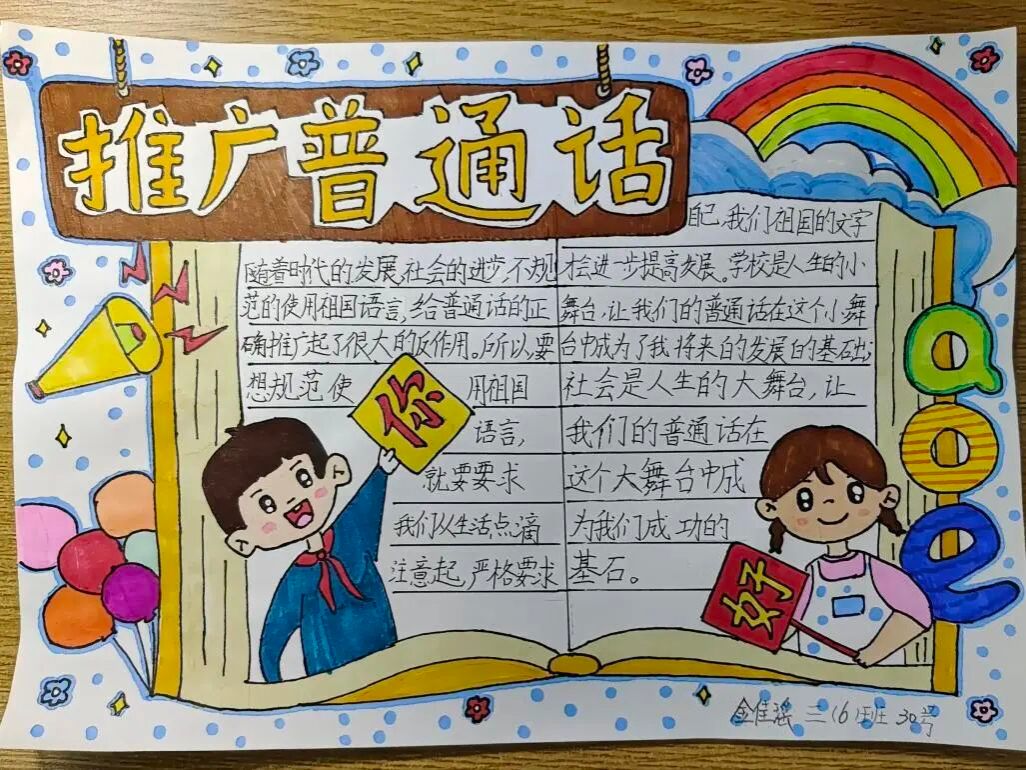 推广普通话
随着时代的发展,社会的进步,不规
范的使用祖国语言,给普通话的正
确推广起了很大的反作用。所以,要
想规范使用祖国
语言,
就要要求
我们从生活点滴
注意起,严格要求
自己,我们祖国的文字
才会进一步提高发展。学校是人生的小
舞台,让我们的普通话在这个小舞
台中成为了我将来的发展的基础;
社会是人生的大舞台,让
我们的普通话在
这个大舞台中成
为我们成功的
基石。
你
好
a
o
e
金佳瑶 三(6)班 30号